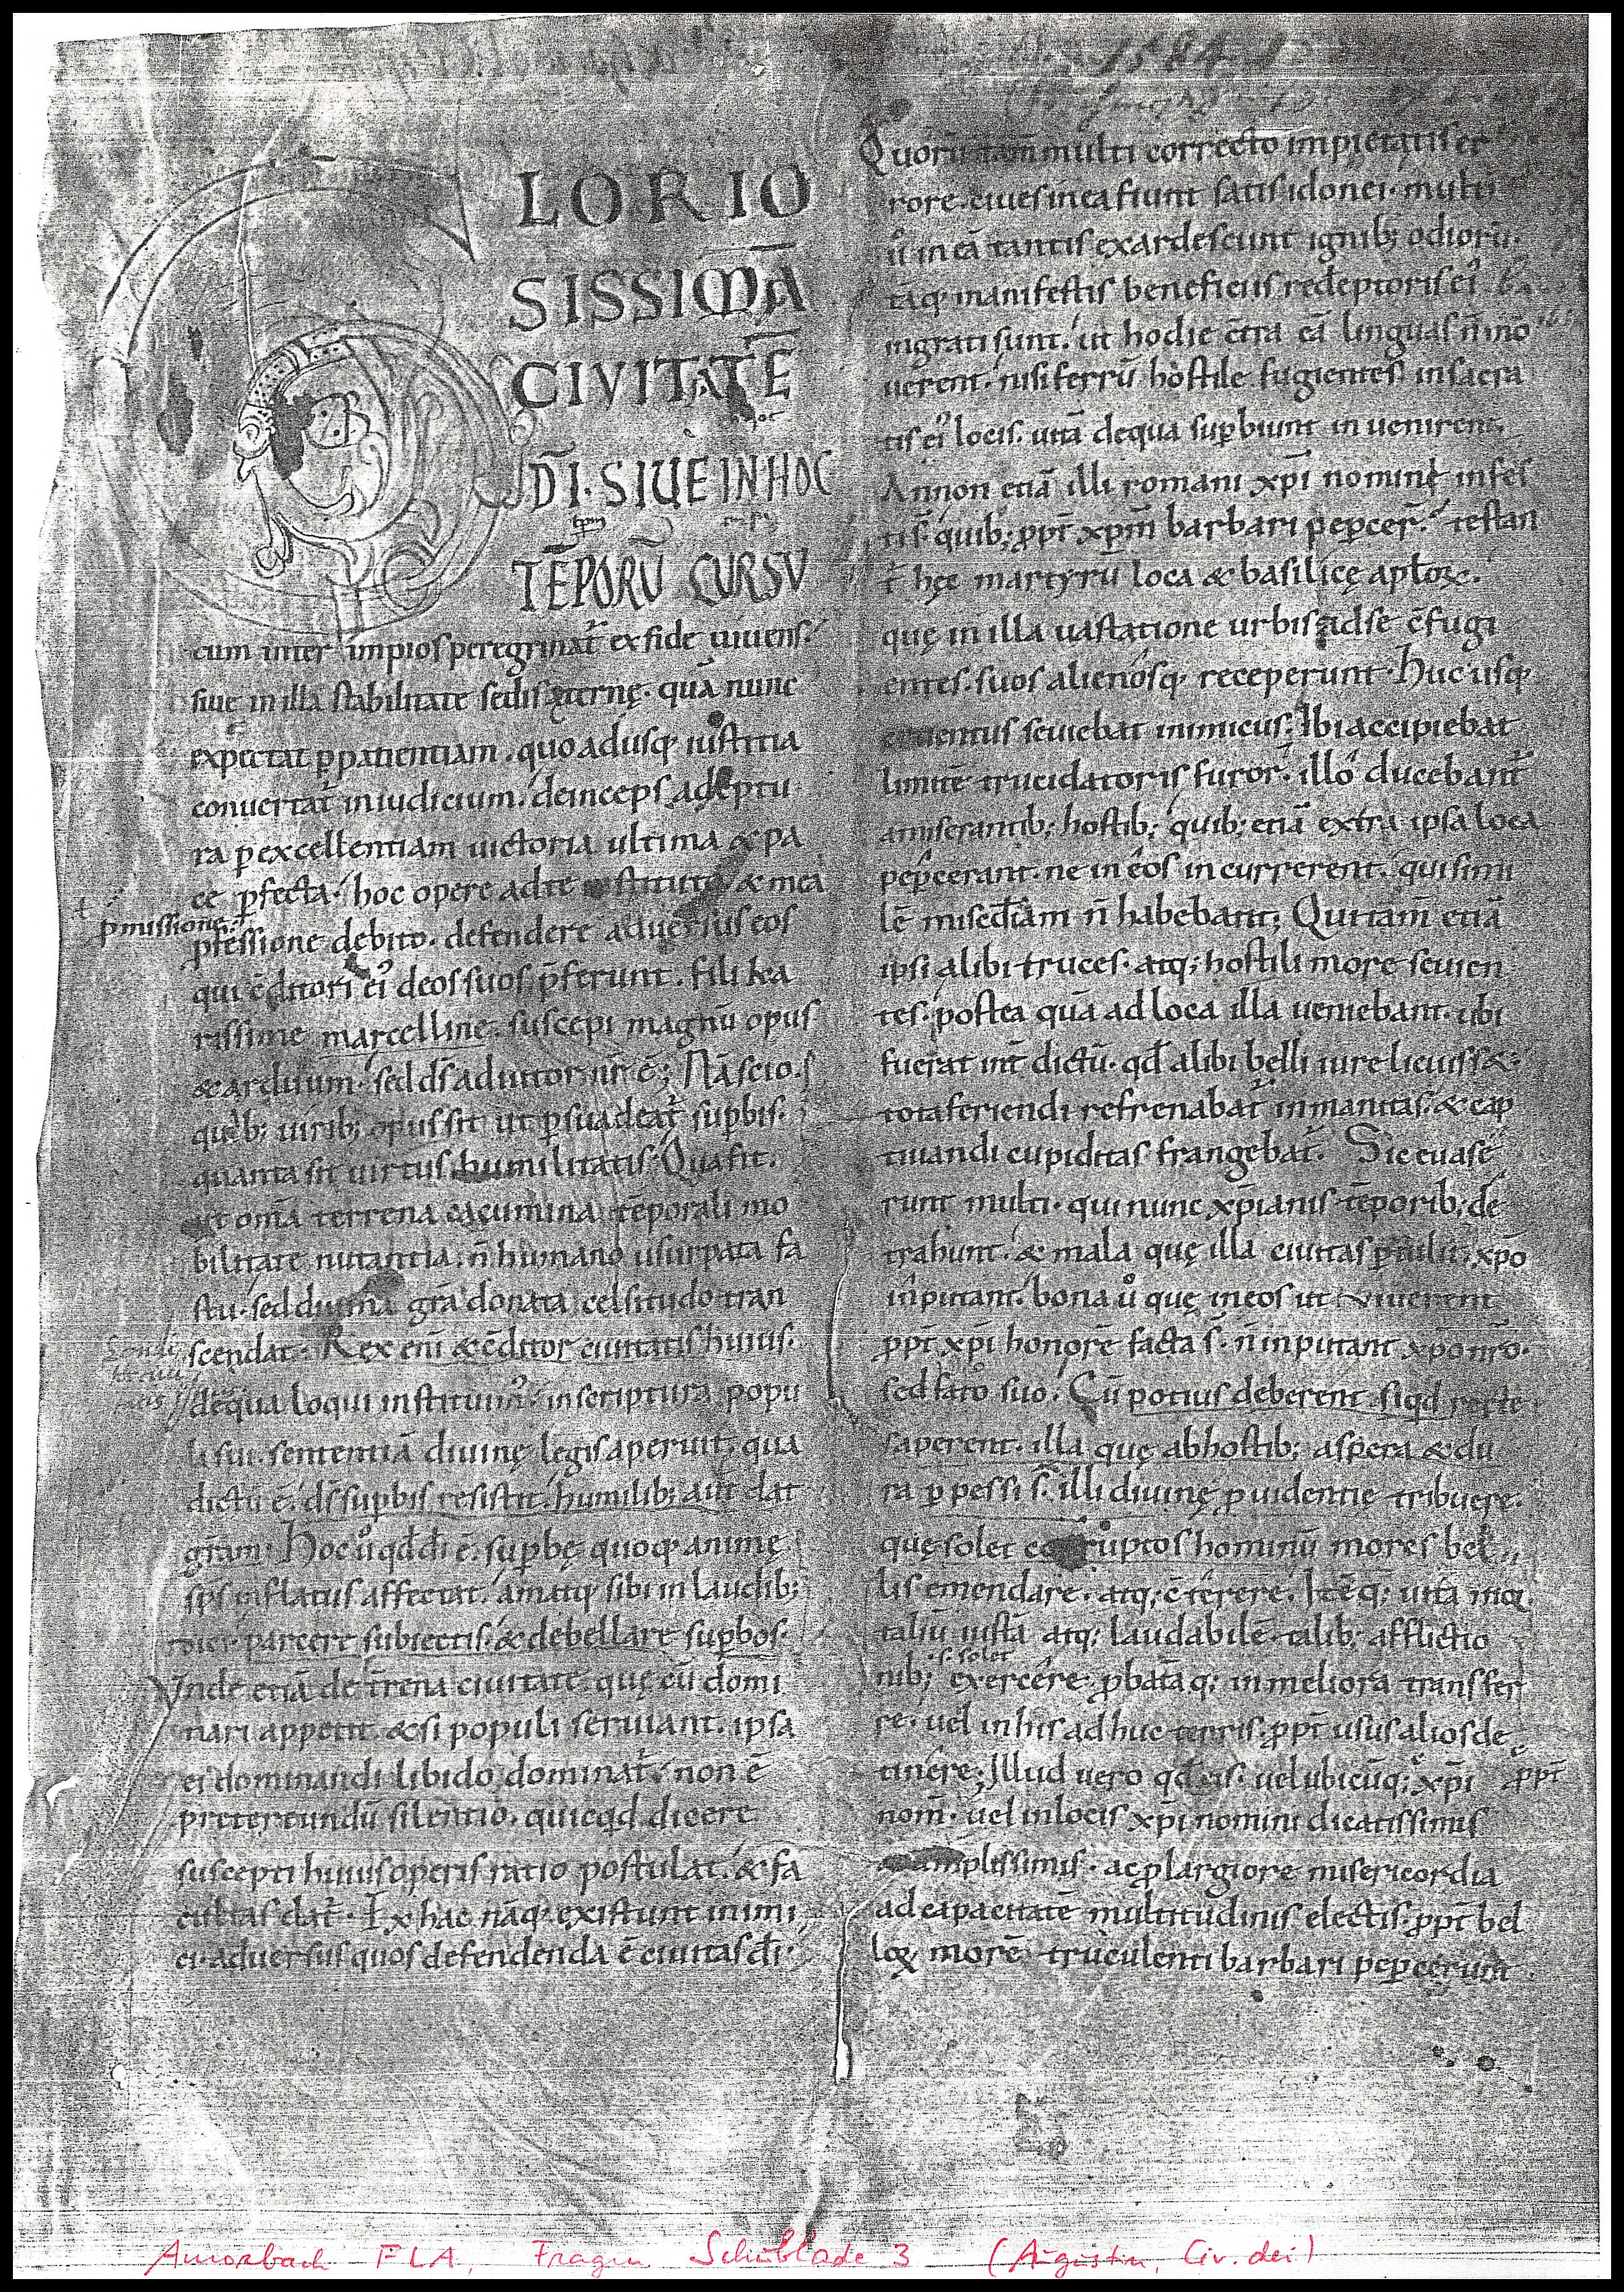 1584
GLORIO
SISSIMĀ
CIVITATĒ
DĪ·SIUE IN HOC
tꝑm
TĒPORŪ CURSU
cum inter impios peregrinat᷑ ex fide uiuens.
siue in illa stabilitate sedis ęternę. quā nunc
expectat ꝑ patientiam. quo adusq; iustitia
conuertat᷑ in iudicium. deinceps adeptu
ra ꝑ excellentiam uictoria ultima & pa
ce ꝑfecta. hoc opere ad te instituto & mea
ꝓmissione
ꝓfessione debito. defendere aduersus eos
qui c̄ditori ei᾿ deos suos p̄ferunt. fili ka
rissime marcelline. suscepi magnū opus
& arduum. sed ds̄ adiutor nr̄ ē; Nā scio.
quib; uirib; opus sit ut ꝑsuadeat᷑ suꝑbis.
quanta sit uirtus humilitatis. Qua fit.
ut om̄a terrena cacumina tēporali mo
bilitate nutantia. n̄ humano usurpata fa
stu. sed diuina gr̄a donata celsitudo tran
scendat. Rex eni᷑ & c̄ditor ciuitatis huius.
de qua loqui instituim᾿. in scriptura popu
li sui. sententiā diuinę legis aperuit. qua
dictū ē. ds̄ suꝑbis resistit. humilib; aut̄ dat
gr̄am. Hoc u᷑ qd̄ dī ē. suꝑbę quoq; animę
sp̄s inflatus affectat. amatq; sibi in laudib;
dici. parcere subiectis. & debellare suꝑbos.
Vnde etiā de t̄rena ciuitate. quę cū domi
nari appetit. & si populi seruiant. ipsa
ei dominandi libido dominat᷑. non ē
pretereundū silentio. quicqd dicere
suscepti huius operis ratio postulat. & fa
cultas dat᷑. Ex hac nāq; existunt inimi
ci. aduersus quos defendenda ē ciuitas dī.
Quorū tam̄ multi correcto impietatis er
rore. ciues in ea fiunt satis idonei. multi
u᷑ in eā tantis exardescunt ignib; odiorū.
tāq; manifestis beneficiis redēptoris ei᾿
ingrati sunt. ut hodie c̄tra eā linguas n̄ mo
uerent. nisi ferrū hostile fugientes in sacra
tis ei᾿ locis. uitā de qua suꝑbiunt inuenirent.
Annon etiā illi romani xp̄i nomini infes
ti s̄. quib; ꝓpt̄ xp̄m barbari peꝑcer᷑. testan
t᷑ hęc martyrū loca & basilicę apl̄oꝝ.
quę in illa uastatione urbis ad se c̄fugi
entes. suos alienosq; receperunt. Huc usq;
cruentus seuiebat inimicus. Ibi accipiebat
limitē trucidatoris furor. illo ducebant᷑
a miserantib; hostib; quib; etiā extra ipsa loca
peꝑcerant. ne in eos incurrerent. qui simi
lē misc̄diam n̄ habebant; Qui tam̄ etiā
ipsi alibi truces. atq; hostili more seuien
tes. postea quā ad loca illa ueniebant. ubi
fuerat int᷑dictū. qd̄ alibi belli iure licuiss&.
tota feriendi refrenabat᷑ inmanitas. & cap
tiuandi cupiditas frangebat᷑. Sic euase
runt multi. qui nunc xp̄ianis tēporib; de
trahunt. & mala quę illa ciuitas ꝑtulit. xp̄o
inputant. bona u᷑ quę in eos ut uiuerent
ꝓpt̄ xp̄i honorē facta s̄. n̄ inputant xp̄o nr̄o.
sed fato suo. Cū potius deberent siqd recte
saperent. illa quę ab hostib; aspera & du
ra ꝑpessi s̄. illi diuinę ꝓuidentię tribuere.
quę solet corruptos hominū mores bel
lis emendare. atq; c̄terere. Itēq; uitā mor
taliū iustā atq; laudabilē. talib; afflictio
.s. solet
nib; exercere. ꝓbatāq; in meliora transfer
re. uel in his adhuc terris. ꝓpt̄ usus alios de
tinere; Illud uero qd̄ eis. uel ubicūq; xp̄i
ꝓpt̄
nom̄. uel in locis xp̄i nomini dicatissimis
& amplissimis. ac ꝓ largiore misericordia
ad capacitatē multitudinis electis. ꝓpt̄ bel
loꝝ morē truculenti barbari peꝑcerunt
Amorbach FLA, Fragm Schublade 3 (Augustin, Civ. dei)